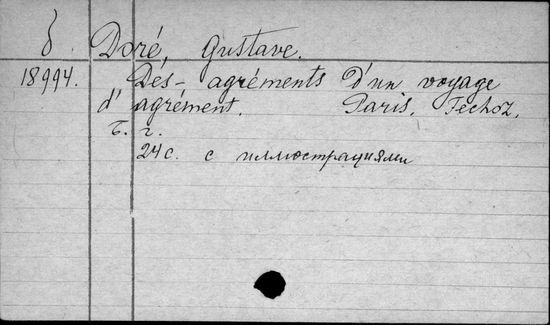 δ. Doré, Gustave.
18994. Des-agréments d'un voyage
d'agrément. Paris, Fechoz,
б. г.
24 с. с иллюстрациями